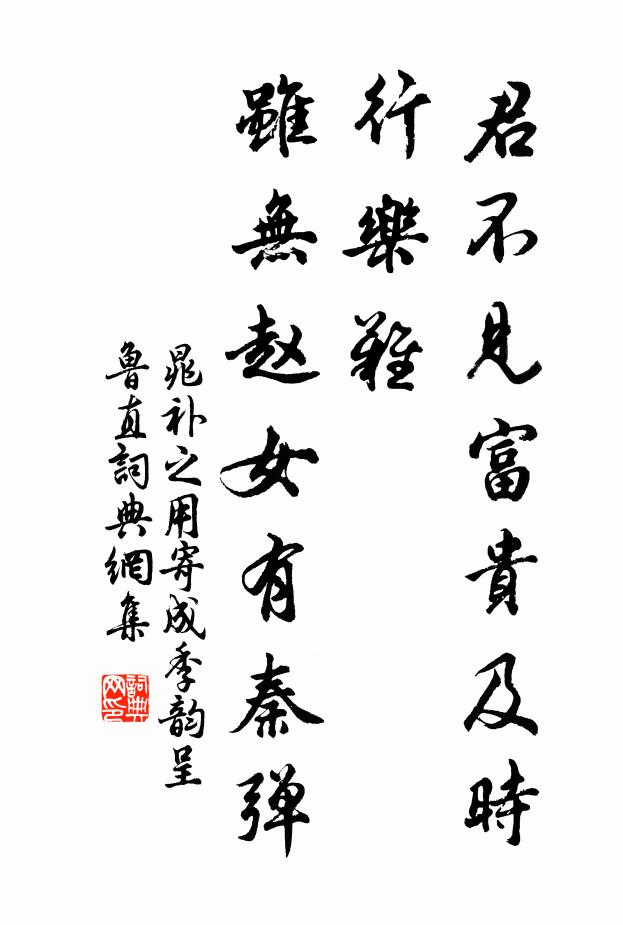 君不見富貴及時
行樂難
雖無赵女有秦弹
晁补之用寄成季韵呈
鲁直詞典網集
詞典
网印